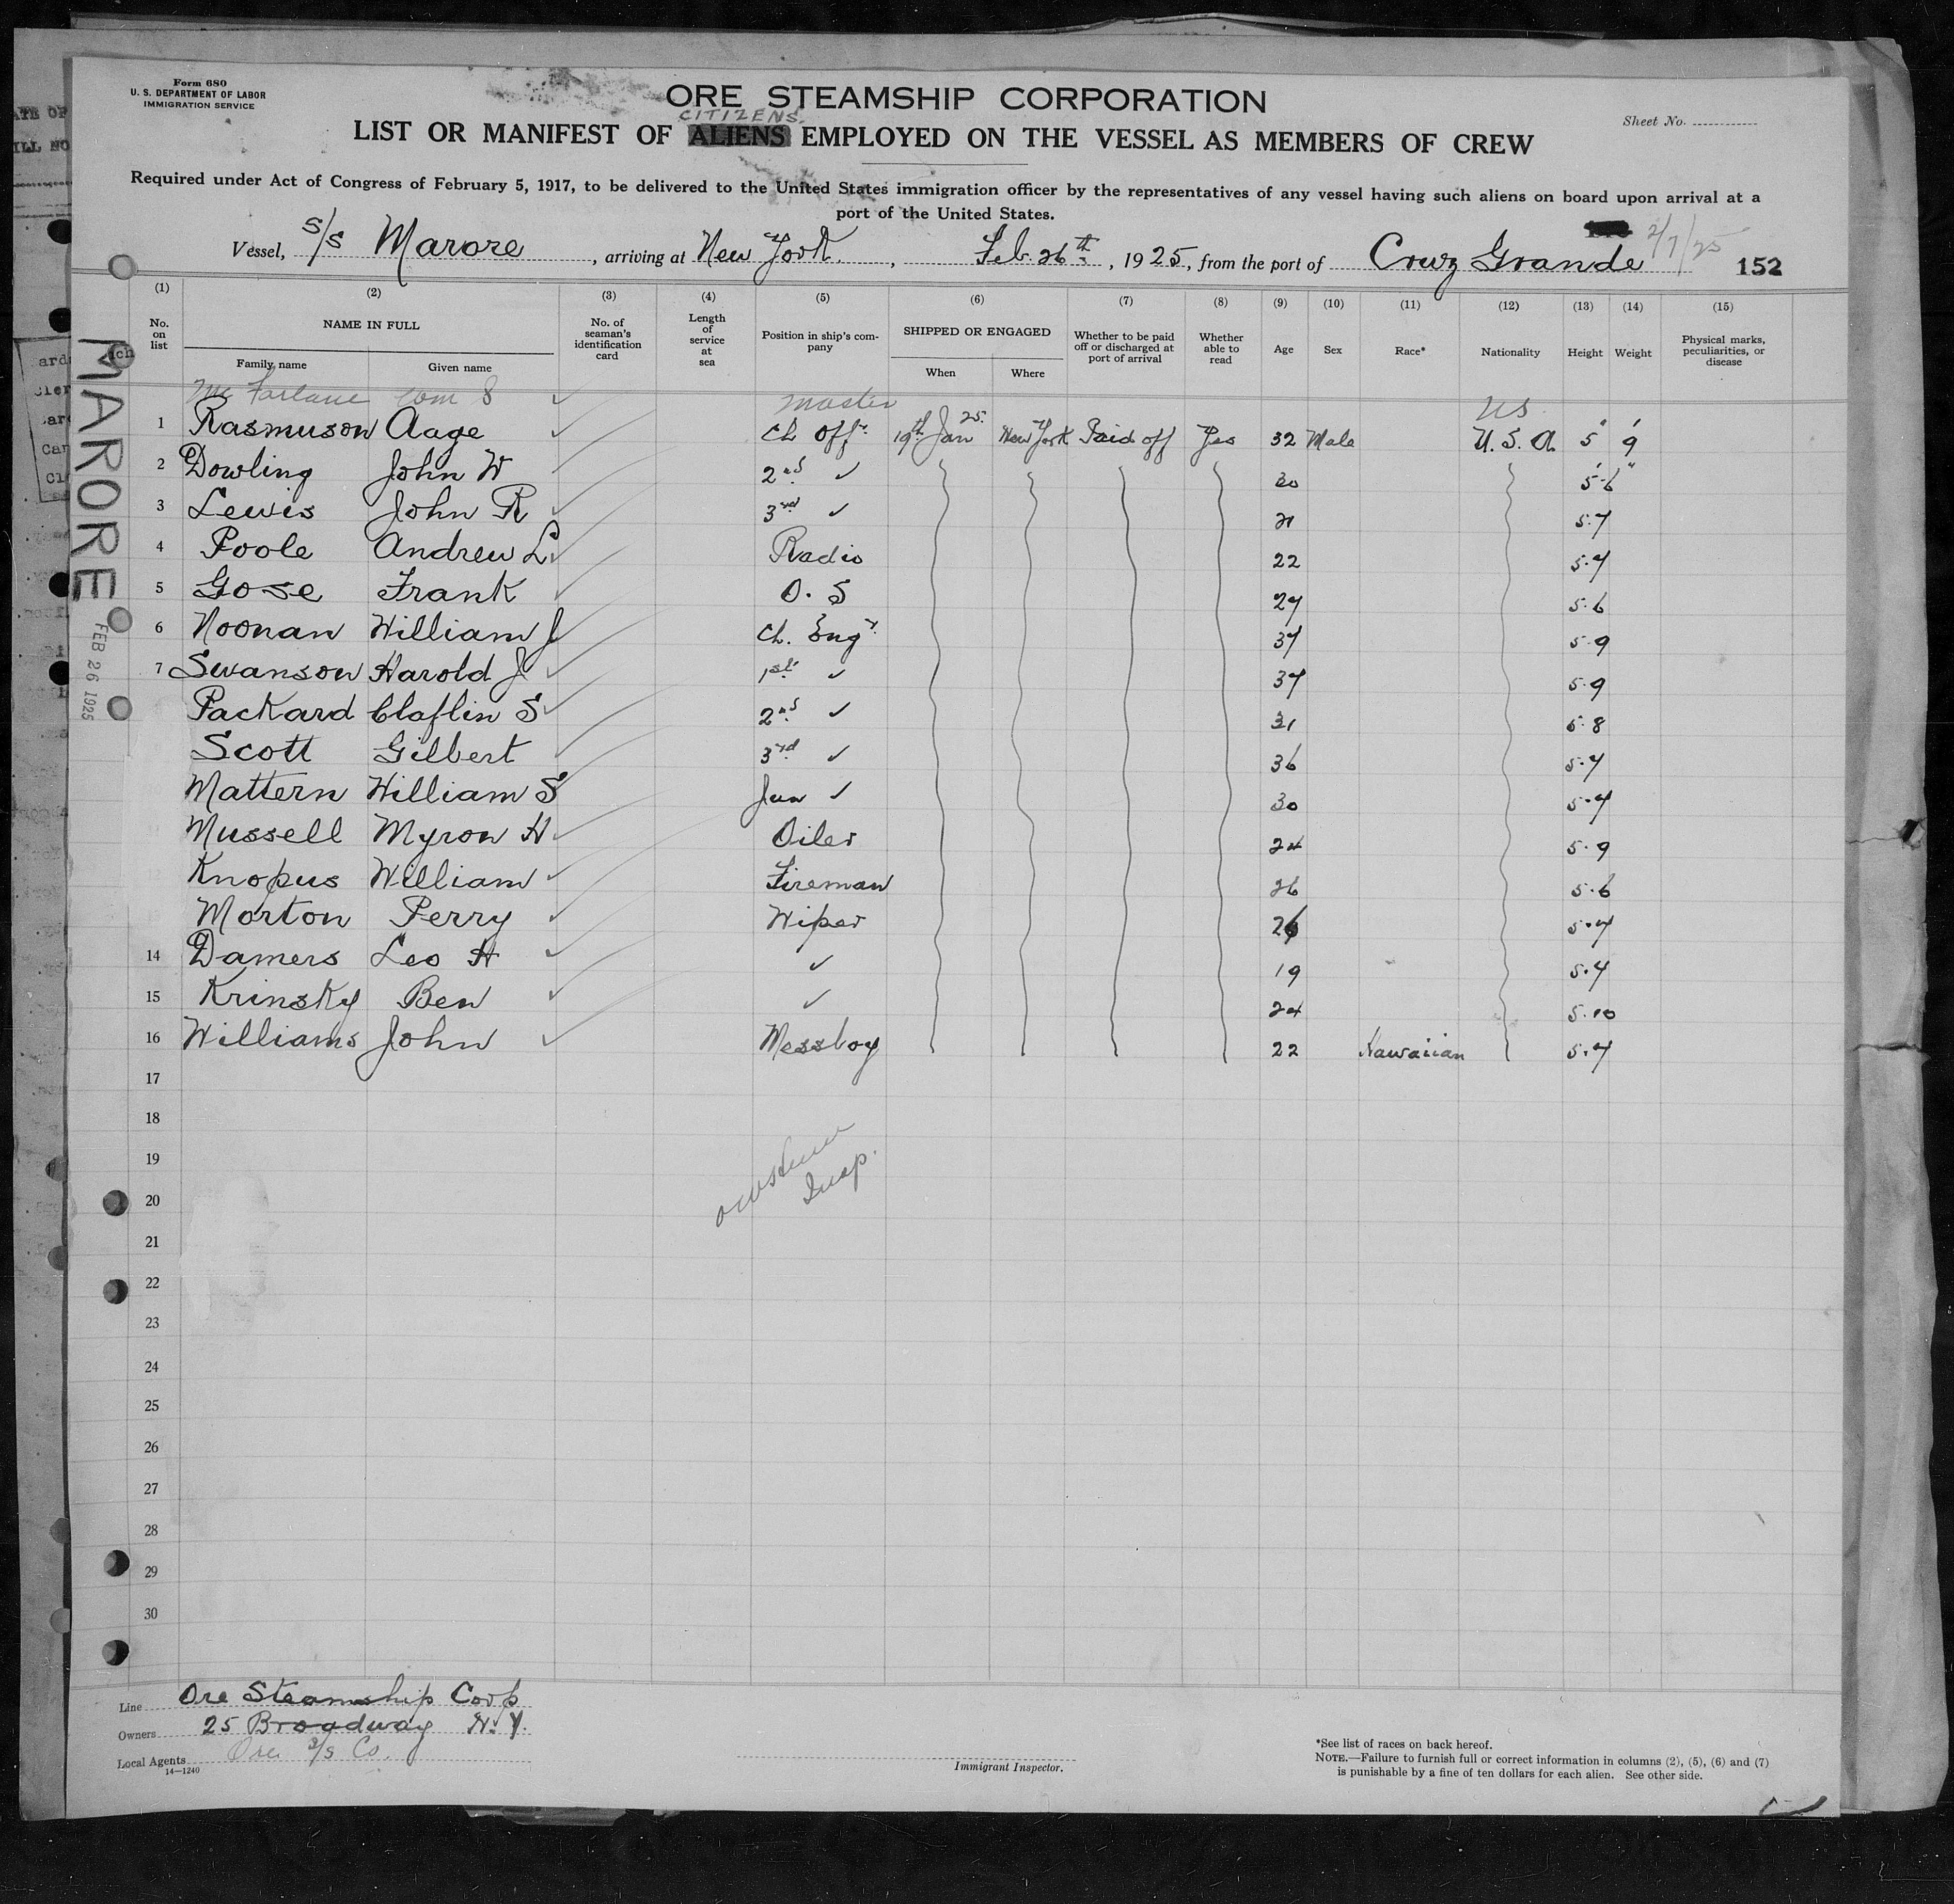 Form 680
U. S. DEPARTMENT OF LABOR
IMMIGRATION SERVICE
ORE STEAMSHIP CORPORATION
CITIZENS
LIST OR MANIFEST OF ALIENS EMPLOYED ON THE VESSEL AS MEMBERS OF CREW
Sheet No.
Required under Act of Congress of February 5, 1917, to be delivered to the United States immigration officer by the representatives of any vessel having such aliens on board upon arrival at a
port of the United States.
Vessel, S/S Marore, arriving at New York, Feb. 26th, 1925, from the port of Cruz Grande 2/7/25 152
(1) (2) (3) (4) (5) (6) (7) (8) (9) (10) (11) (12) (13) (14) (15)
No. on list NAME IN FULL Family name Given name No. of seaman's identification card Length of service at sea Position in ship's company SHIPPED OR ENGAGED When Where Whether to be paid off or discharged at port of arrival Whether able to read Age Sex Race* Nationality Height Weight Physical marks, peculiarities, or disease
Mc Farlane Wm S ✓ Master US
1 Rasmuson Aage Ch Offr 19th Jan 25. New York Paid off Yes 32 Male U. S. A. 5' 9'
2 Dowling John W 2nd ✓ 30 5'-6"
3 Lewis John R ✓ 3rd ✓ 21 5.7
4 Poole Andrew L ✓ Radio 22 5.7
5 Gose Frank ✓ O. S 27 5.6
6 Noonan William J Ch. Engr 37 5.9
7 Swanson Harold J ✓ 1st ✓ 37 5.9
Packard Claflin S ✓ 2nd ✓ 31 5.8
Scott Gilbert ✓ 3rd ✓ 36 5.7
Mattern William S Jun ✓ 30 5.7
Mussell Myron H ✓ Oiler 24 5.9
Knopus William ✓ Fireman 26 5.6
Morton Perry ✓ Wiper 26 5.7
14 Damers Leo H ✓ ✓ 19 5.7
15 Krinsky Ben ✓ ✓ 24 5.10
16 Williams John ✓ Messboy 22 Hawaiian 5.7
17
18
19
20
Insp.
21
22
23
24
25
26
27
28
29
30
MARORE
FEB 26 1925
Line Ore Steamship Corp
Owners 25 Broadway N. Y.
Local Agents Ore S/S Co.
14—1240
Immigrant Inspector.
*See list of races on back hereof.
NOTE.—Failure to furnish full or correct information in columns (2), (5), (6) and (7)
is punishable by a fine of ten dollars for each alien. See other side.